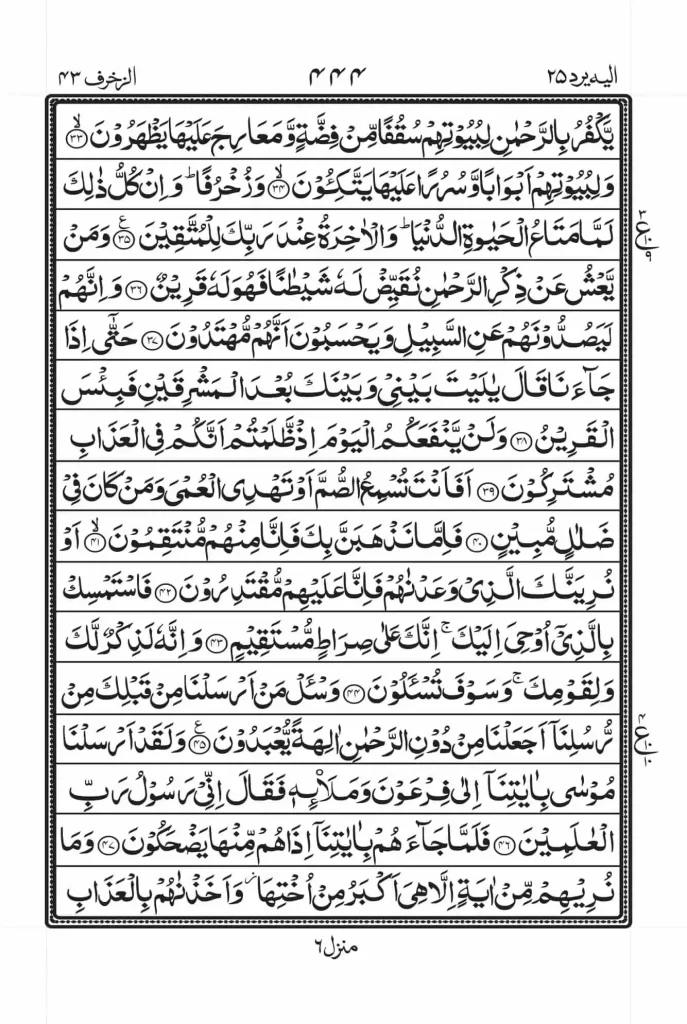 اليه يرد ٢٥ ۴۴۴ الزخرف ۴٣
يَّكْفُرُ بِالرَّحْمٰنِ لِبُيُوْتِهِمْ سُقُفًا مِّنْ فِضَّةٍ وَّمَعَارِجَ عَلَيْهَا يَظْهَرُوْنَ ۙ‏﴿۳۳﴾
وَلِبُيُوْتِهِمْ اَبْوَابًا وَّسُرُرًا عَلَيْهَا يَتَّكِـُٔوْنَ ۙ‏﴿۳۴﴾ وَزُخْرُفًا ؕ وَاِنْ كُلُّ ذٰلِكَ
لَمَّا مَتَاعُ الْحَيٰوةِ الدُّنْيَا ؕ وَالْاٰخِرَةُ عِنْدَ رَبِّكَ لِلْمُتَّقِيْنَ ﴿۳۵﴾ ع وَمَنْ
ع
يَّعْشُ عَنْ ذِكْرِ الرَّحْمٰنِ نُقَيِّضْ لَهٗ شَيْطٰنًا فَهُوَ لَهٗ قَرِيْنٌ ﴿۳۶﴾ وَاِنَّهُمْ
لَيَصُدُّوْنَهُمْ عَنِ السَّبِيْلِ وَيَحْسَبُوْنَ اَنَّهُمْ مُّهْتَدُوْنَ ﴿۳۷﴾ حَتّٰٓى اِذَا
جَآءَنَا قَالَ يٰلَيْتَ بَيْنِيْ وَبَيْنَكَ بُعْدَ الْمَشْرِقَيْنِ فَبِئْسَ
الْقَرِيْنُ ﴿۳۸﴾ وَلَنْ يَّنْفَعَكُمُ الْيَوْمَ اِذْ ظَّلَمْتُمْ اَنَّكُمْ فِى الْعَذَابِ
مُشْتَرِكُوْنَ ﴿۳۹﴾ اَفَاَنْتَ تُسْمِعُ الصُّمَّ اَوْ تَهْدِى الْعُمْىَ وَمَنْ كَانَ فِيْ
ضَلٰلٍ مُّبِيْنٍ ﴿۴۰﴾ فَاِمَّا نَذْهَبَنَّ بِكَ فَاِنَّا مِنْهُمْ مُّنْتَقِمُوْنَ ۙ‏﴿۴۱﴾ اَوْ
نُرِيَنَّكَ الَّذِيْ وَعَدْنٰهُمْ فَاِنَّا عَلَيْهِمْ مُّقْتَدِرُوْنَ ﴿۴۲﴾ فَاسْتَمْسِكْ
بِالَّذِيْۤ اُوْحِىَ اِلَيْكَ ۚ اِنَّكَ عَلٰى صِرَاطٍ مُّسْتَقِيْمٍ ﴿۴۳﴾ وَاِنَّهٗ لَذِكْرٌ لَّكَ
وَلِقَوْمِكَ ۚ وَسَوْفَ تُسْـَٔلُوْنَ ﴿۴۴﴾ وَسْـَٔلْ مَنْ اَرْسَلْنَا مِنْ قَبْلِكَ مِنْ
رُّسُلِنَاۤ اَجَعَلْنَا مِنْ دُوْنِ الرَّحْمٰنِ اٰلِهَةً يُّعْبَدُوْنَ ﴿۴۵﴾ ع وَلَقَدْ اَرْسَلْنَا
ع
مُوْسٰى بِاٰيٰتِنَاۤ اِلٰى فِرْعَوْنَ وَمَلَا۟ئِهٖ فَقَالَ اِنِّيْ رَسُوْلُ رَبِّ
الْعٰلَمِيْنَ ﴿۴۶﴾ فَلَمَّا جَآءَهُمْ بِاٰيٰتِنَاۤ اِذَا هُمْ مِّنْهَا يَضْحَكُوْنَ ﴿۴۷﴾ وَمَا
نُرِيْهِمْ مِّنْ اٰيَةٍ اِلَّا هِىَ اَكْبَرُ مِنْ اُخْتِهَا ؗ وَاَخَذْنٰهُمْ بِالْعَذَابِ
منزل ٦